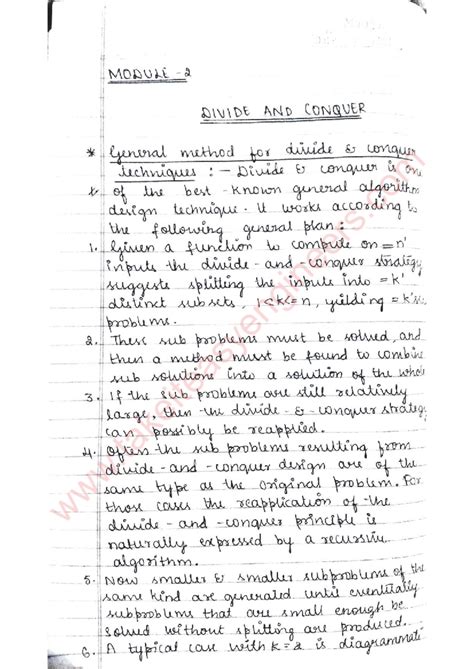 MODULE - 2
DIVIDE AND CONQUER
* General method for divide & conquer
techniques : - Divide & conquer is one
of the best - known general algorithm
design technique. It works according to
the following general plan :
1. Given a function to compute on = n'
inputs the divide - and - conquer strategy
suggests splitting the inputs into = k'
distinct subsets, 1<k<=n, yielding = k'
problems.
2. These sub problems must be solved, and
then a method must be found to combine
sub solutions into a solution of the whole
3. If the sub problems are still relatively
large, then the divide - & - conquer strategy
can possibly be reapplied.
4. Often the sub problems resulting from
divide - and - conquer design are of the
same type as the original problem. For
those cases the reapplication of the
divide - and - conquer principle is
naturally expressed by a recursive
algorithm.
5. Now smaller & smaller subproblems of the
same kind are generated until eventually
subproblems that are small enough be
solved without splitting are produced.
6. A typical case with k = 2 is diagrammati